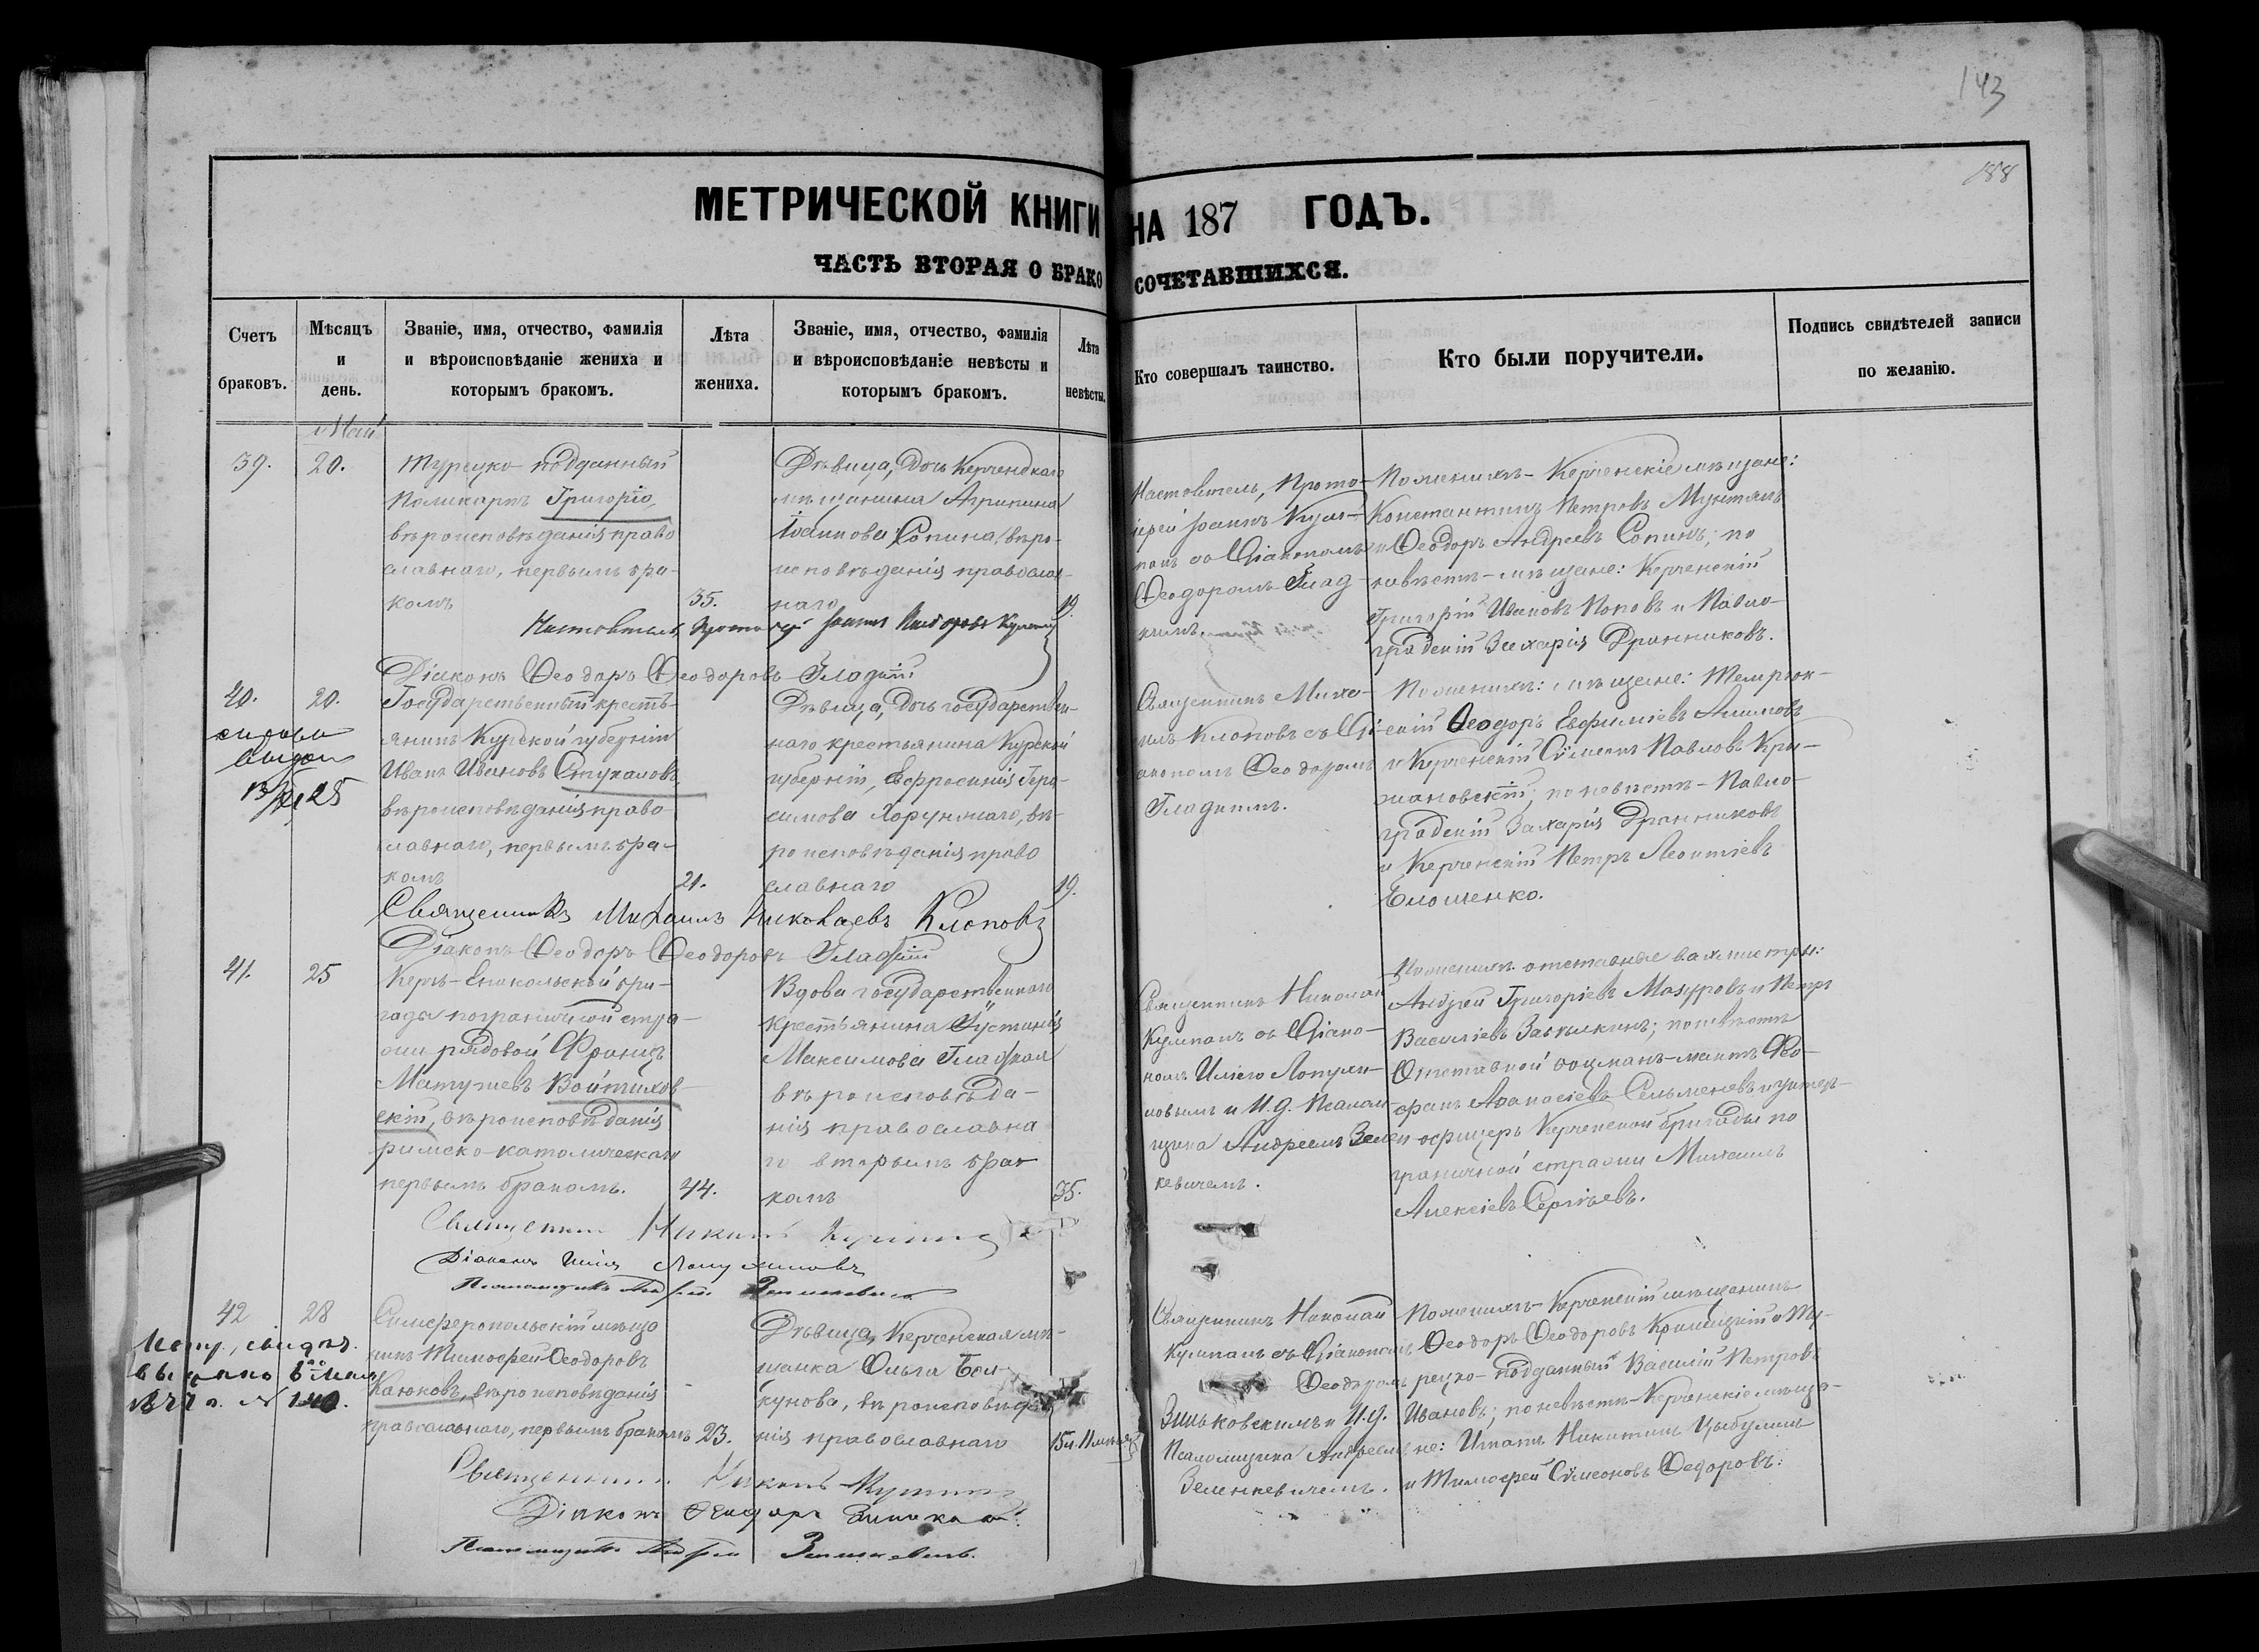 143
188
МЕТРИЧЕСКОЙ КНИГИ НА 187 ГОДЪ.
ЧАСТЬ ВТОРАЯ О БРАКОСОЧЕТАВШИХСЯ.
Счетъ браковъ.
Мѣсяцъ и день.
Званіе, имя, отчество, фамилія и вѣроисповѣданіе жениха и которымъ бракомъ.
Лѣта жениха.
Званіе, имя, отчество, фамилія и вѣроисповѣданіе невѣсты и которымъ бракомъ.
Лѣта невѣсты.
Кто совершалъ таинство.
Кто были поручители.
Подпись свидѣтелей записи по желанію.
Май
39.
20.
Турецко-подданный
Поликарпъ Григоріо,
вѣроисповѣданія право
славнаго, первымъ бра-
комъ
35.
Дѣвица, дочь Керченскаго
мѣщанина Агрипина
Іоаннова Сопина, вѣро-
исповѣданія православ-
наго
19.
Настоятель, Прото-
іерей Іоаннъ Кум-
панъ съ Діакономъ
Феодоромъ Глад-
кимъ.
По женихѣ - Керченскіе мѣщане:
Константинъ Петровъ Мунтянъ
и Феодоръ Андреевъ Сопинъ; по
невѣстѣ - мѣщане: Керченскій
Григорій Ивановъ Поповъ и Павло-
градскій Захарія Дранниковъ.
Настоятель, Протоіерей Іоаннъ
Діаконъ Феодоръ Феодоровъ Гладкій
40.
20.
выдана
Государственный кресть-
янинъ Курской губерніи
Иванъ Ивановъ Стукаловъ,
вѣроисповѣданія право-
славнаго, первымъ бра-
комъ
21.
Дѣвица, дочь государствен-
наго крестьянина Курской
губерніи, Евфросинія Гера-
симова Хорунжаго, вѣ-
роисповѣданія право
славнаго
19.
Священникъ Миха-
илъ Клоповъ съ Ді-
акономъ Феодоромъ
Гладкимъ.
По женихѣ: мѣщане: Темрюк-
скій Феодоръ Евфиміевъ Акимовъ
и Керченскій Сѵмеонъ Павловъ Кры-
жановскій; по невѣстѣ - Павло-
градскій Захарія Дранниковъ
и Керченскій Петръ Леонтіевъ
Блошенко.
Священникъ Михаилъ Николаевъ Клоповъ
Діаконъ Феодоръ Феодоровъ Гладкій
41.
25
Керчь-Еникольской бри-
гады пограничной стра-
жи рядовой Францъ
Матушевъ Войтихов-
скій, вѣроисповѣданія
римско-католическаго
первымъ бракомъ.
44.
Вдова государственнаго
крестьянина Іустинія
Максимова Гладкая
вѣроисповѣда-
нія православна
го вторымъ бра-
комъ
35.
Священникъ Николай
Кумпанъ съ Діако-
номъ Иліею Лопухи-
новымъ и И.д. Псалом-
щика Андреемъ Зелен
кевичемъ.
По женихѣ отставные вахмистры:
Андрей Григоріевъ Мазуровъ и Петръ
Василіевъ Завялкинъ; по невѣстѣ
Отставной боцманъ-матъ Фео-
фанъ Афанасіевъ Сельменевъ и унтеръ-
офицеръ Керченской бригады по
граничной стражи Михаилъ
Алексіевъ Сергѣевъ.
Священникъ Николай Кумпанъ
Діаконъ Илія Лопухиновъ
Псаломщикъ Андрей Зеленкевичъ
42
28
Мету, свидѣт.
выдано 6го Мая
1877 г. № 140.
Симферопольскій мѣща
нинъ Тимофей Феодоровъ
Каюковъ, вѣроисповѣданія
православнаго, первымъ бракомъ
23.
Дѣвица, Керченская мѣ-
щанка Ольга Бол-
кунова, вѣроисповѣда
нія православнаго
Священникъ Николай
Кумпанъ съ Діакономъ
Феодоромъ
Зиньковскимъ и И.д.
Псаломщика Андреемъ
Зеленкевичемъ.
По женихѣ - Керченскій мѣщанинъ
Феодоръ Феодоровъ Криницкій и Ту-
рецко-подданный Василій Петровъ
Ивановъ; по невѣстѣ - Керченскіе мѣща-
не: Игнатъ Никитинъ Цыбулинъ
и Тимофей Сѵмеоновъ Федоровъ.
Священникъ Николай Кумпанъ
Діаконъ Феодоръ
Псаломщикъ Андрей Зеленкевичъ.